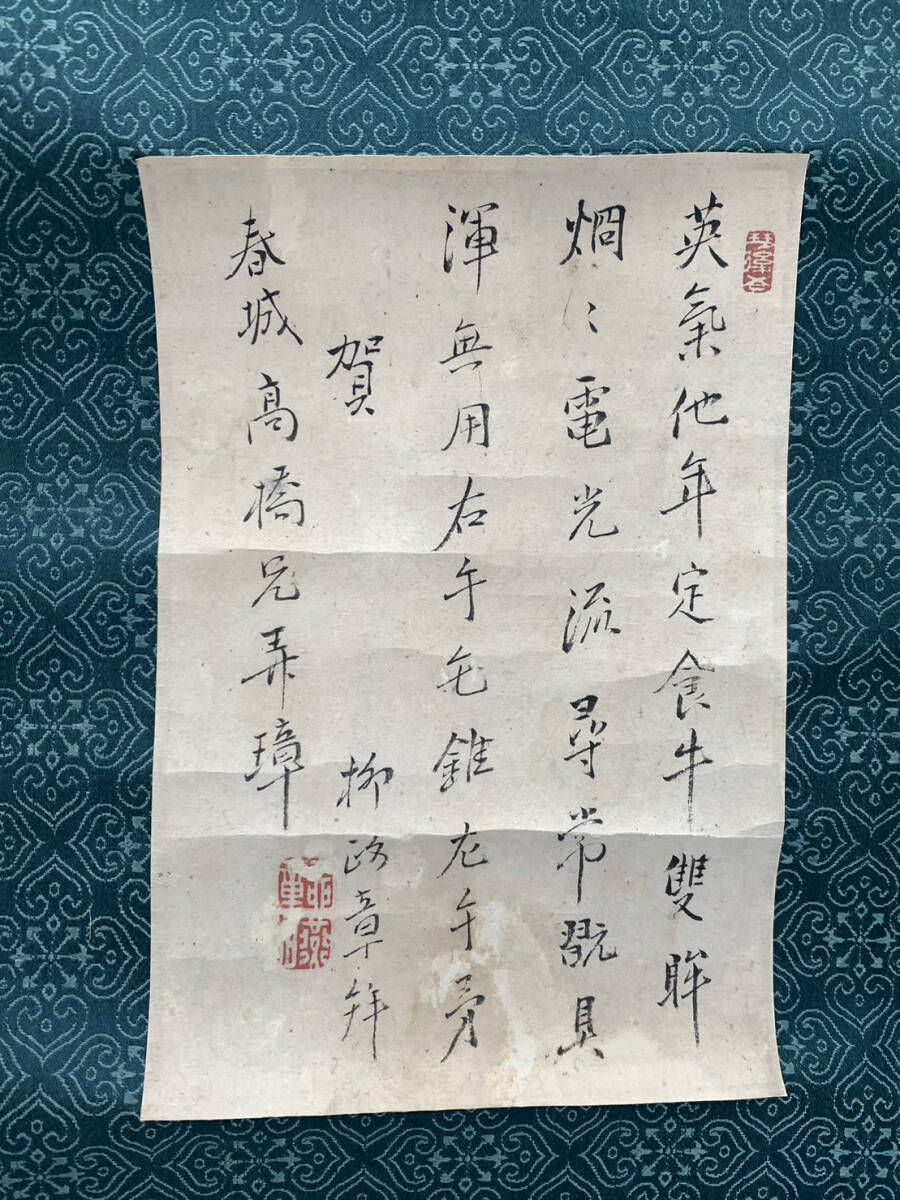 英氣他年定食牛雙眸
烱〻電光流尋常翫具
渾無用右手毛錐左手旁
賀
柳路章拜
春城高橋兄弄璋